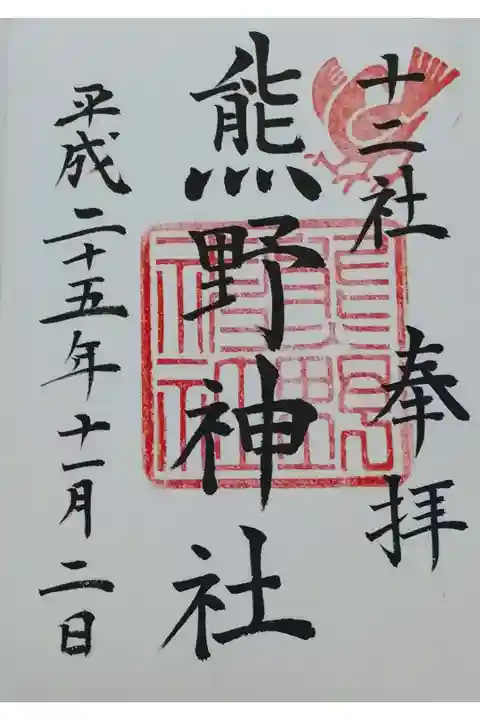 十二社 奉拝
熊野神社
平成二十五年十一月二日
熊野神社